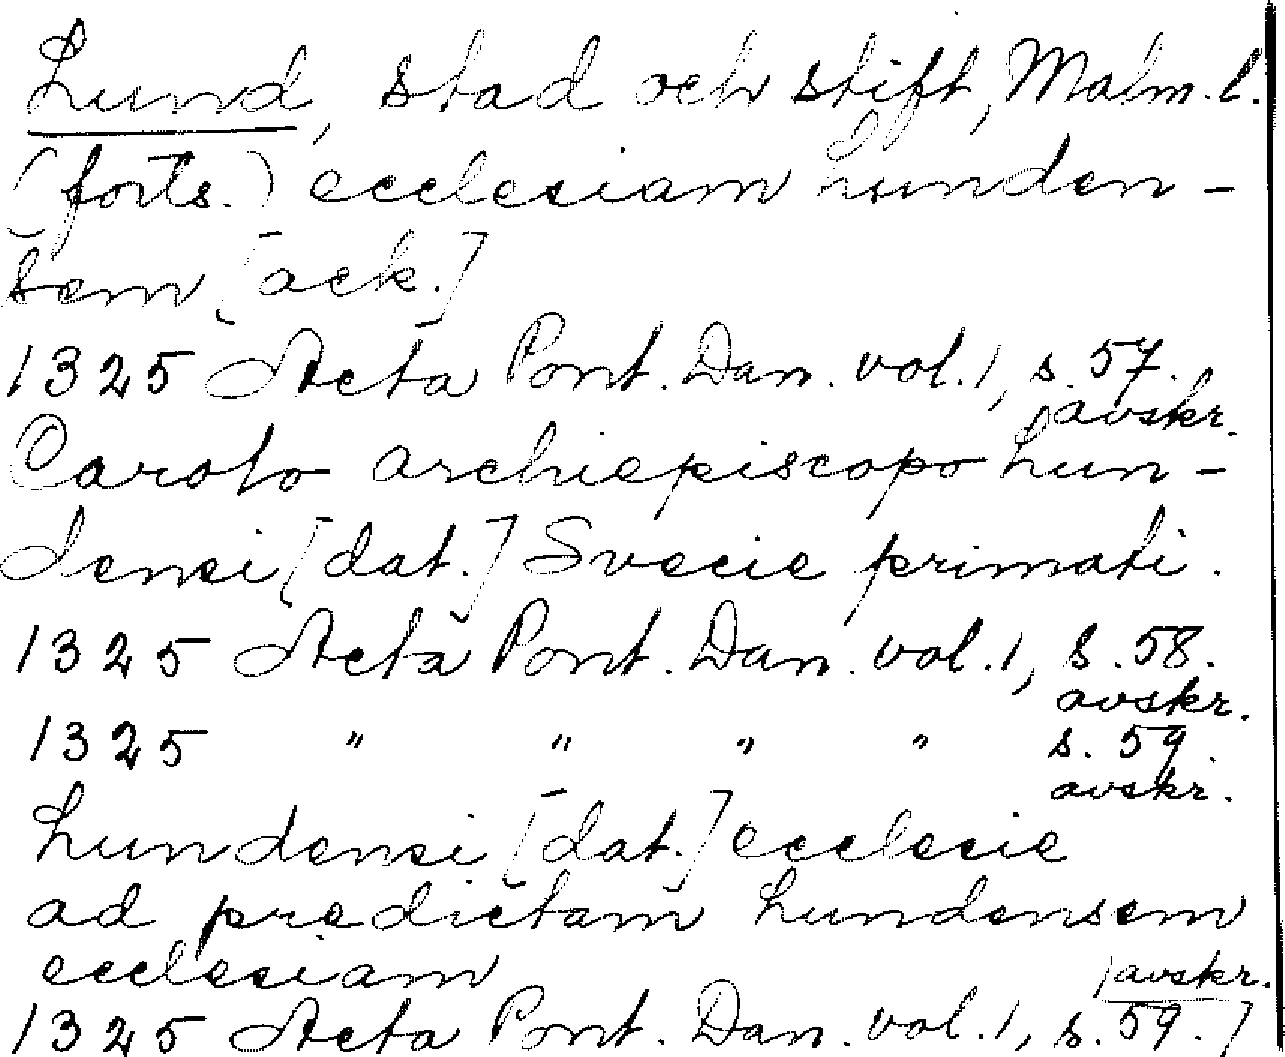 Lund, stad och stift, Malm. l.
(forts.) ecclesiam Lunden-
sem [ack.]
1325 Acta Pont. Dan. vol. 1, s. 57.
avskr.
Carolo archiepiscopo Lun-
densi [dat.] Svecie primati.
1325 Acta Pont. Dan. vol. 1, s. 58.
avskr.
1325 " " " " s. 59.
avskr.
Lundensi [dat.] ecclesie
ad predictam Lundensem
ecclesiam
avskr.
1325 Acta Pont. Dan. vol. 1, s. 59.